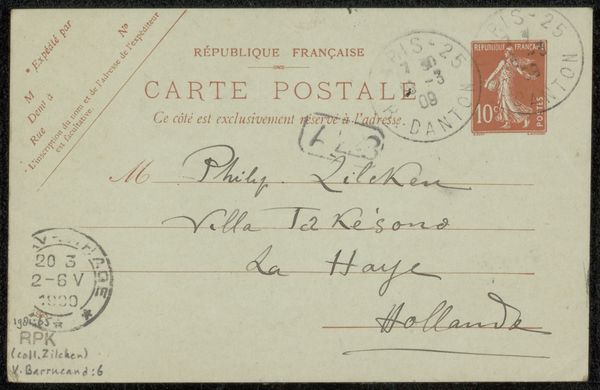 * Expédié par
Nº
M
Demt à
Rue
L'inscription du nom et de l'adresse de l'expéditeur
est facultative.
RÉPUBLIQUE FRANÇAISE
CARTE POSTALE
Ce côté est exclusivement réservé à l'adresse.
PARIS - 25
7 30
3
09
R. DANTON
RÉPUBLIQUE FRANÇAISE
10c
POSTES
PARIS - 25
DANTON
M Philip Zilcken
Villa Hélène
La Haye
Hollande
'S-GRAVENHAGE
20 3
2-6 V
1909
RPK
(coll. Zilcken)
V. Barrucand: 6